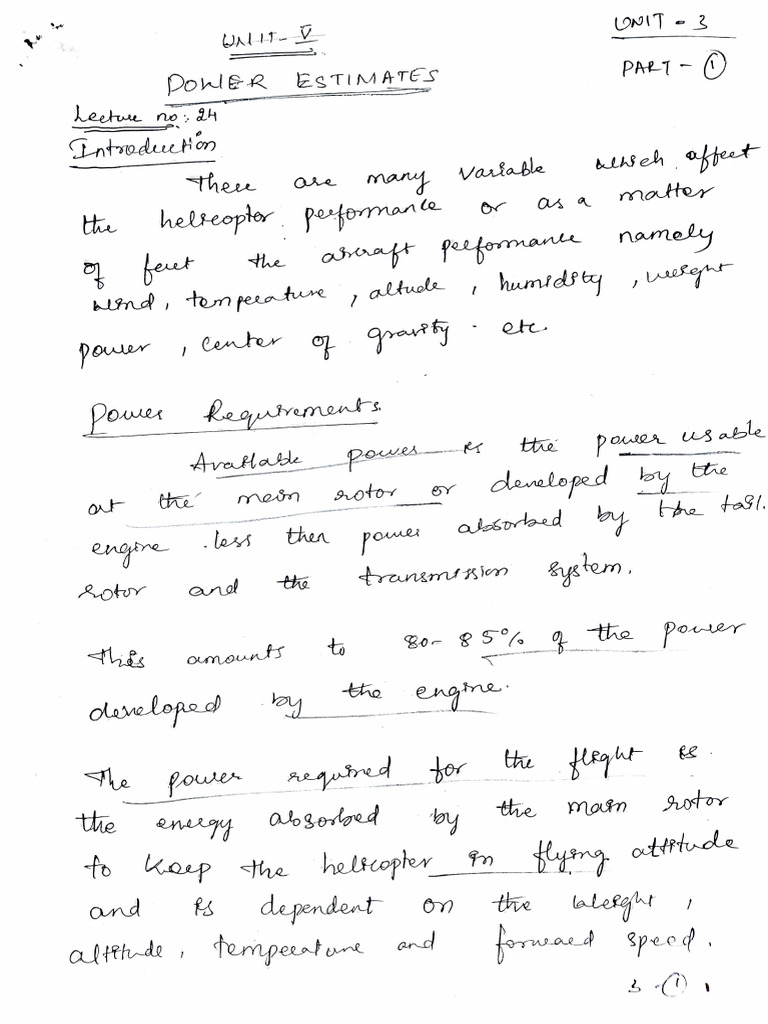 UNIT - V
UNIT - 3
PART - ①
POWER ESTIMATES
Lecture no: 24
Introduction
There are many variable which affect
the helicopter performance or as a matter
of fect the aircraft performance namely
wind, temperature, altude, humidity, weight
power, center of gravity. etc.
Power Requirements.
Available power is the power usable
at the mein rotor or developed by the
engine. less then power absorbed by the tail.
rotor and the transmission system.
This amounts to 80-85% of the power
developed by the engine.
The power required for the flight is
the energy absorbed by the main rotor
to keep the helicopter in flying attitude
and is dependent on the weight,
altitude, temperature and forward speed.
3-① 1